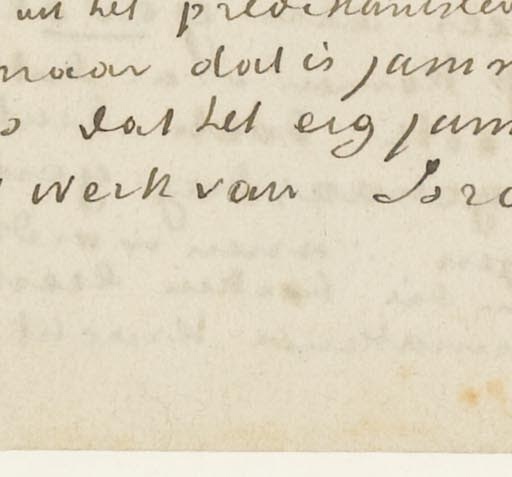 uit het predikantslev
maar dat is jamm
dat het erg jam
werk van Isra